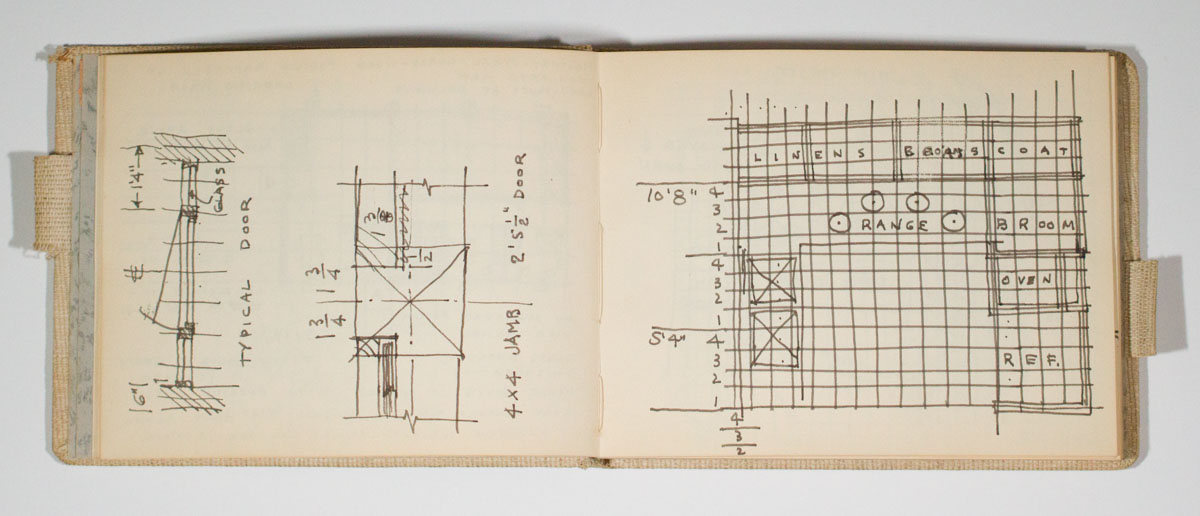 1'4"
GLASS
6"
TYPICAL DOOR
1 3/8
1/2
1 3/4
1 3/4
4 x 4 JAMB 2' 5 1/2" DOOR
LINENS
COAT
10'8"
4
3
2
1
RANGE
BROOM
4
3
2
1
OVEN
5'4"
4
3
2
1
REF.
4
3
2